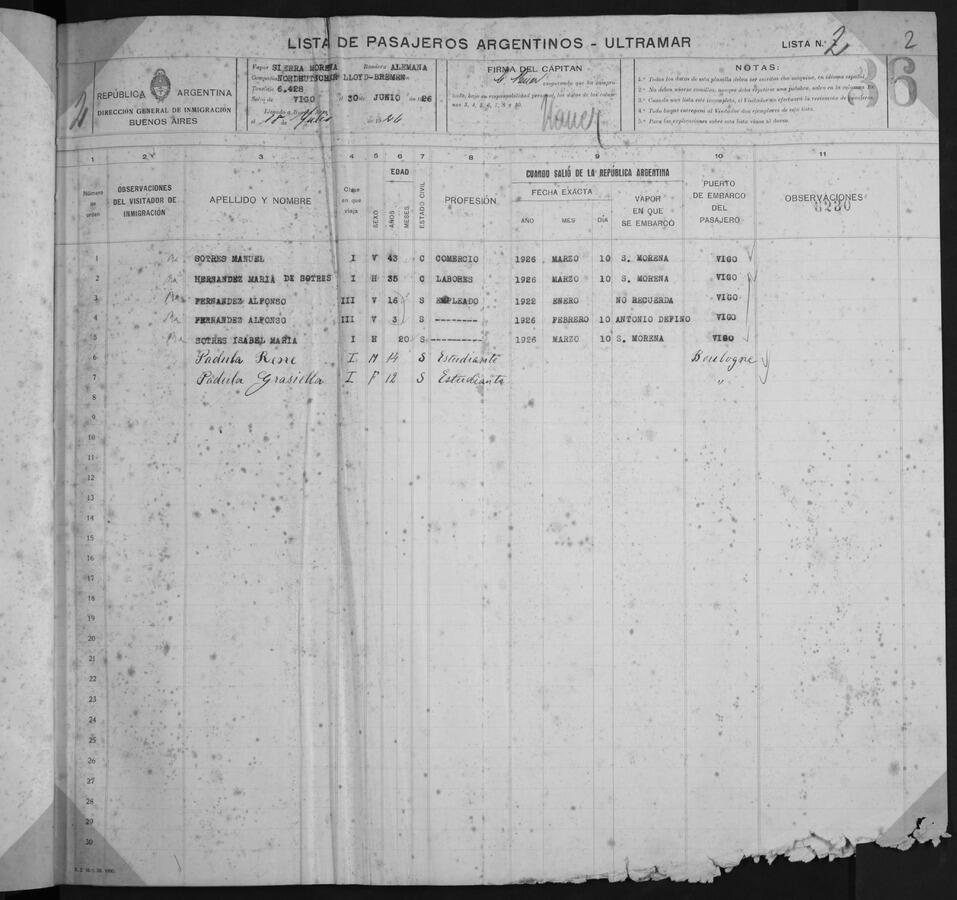 LISTA DE PASAJEROS ARGENTINOS - ULTRAMAR
LISTA N.° 2
2
36
2
REPÚBLICA ARGENTINA
DIRECCIÓN GENERAL DE INMIGRACIÓN
BUENOS AIRES
Vapor SIERRA MORENA Bandera ALEMANA
Compañía NORDDEUTSCHER LLOYD-BREMEN
Tonelaje 6.428
Salió de VIGO el 30 de JUNIO de 1926
FIRMA DEL CAPITAN
NOTAS:
1.ª Todos los datos de esta planilla deben ser escritos con máquina, en idioma español.
5.ª Para las explicaciones sobre esta lista véase al dorso.
1 2 3 4 5 6 7 8 9 10 11
Número de orden
OBSERVACIONES DEL VISITADOR DE INMIGRACIÓN
APELLIDO Y NOMBRE
Clase en que viaja
SEXO
EDAD
AÑOS
MESES
ESTADO CIVIL
PROFESIÓN
CUANDO SALIÓ DE LA REPÚBLICA ARGENTINA
FECHA EXACTA
AÑO MES DÍA
VAPOR EN QUE SE EMBARCÓ
PUERTO DE EMBARCO DEL PASAJERO
OBSERVACIONES
8230
1 SOTRES MANUEL I V 43 C COMERCIO 1926 MARZO 10 S. MORENA VIGO
2 HERNANDEZ MARIA DE SOTRES I H 35 C LABORES 1926 MARZO 10 S. MORENA VIGO
3 FERNANDEZ ALFONSO III V 16 S EMPLEADO 1922 ENERO NO RECUERDA VIGO
4 FERNANDEZ ALFONSO III V 3 S -------- 1926 FEBRERO 10 ANTONIO DEFINO VIGO
5 SOTRES ISABEL MARIA I H 20 S -------- 1926 MARZO 10 S. MORENA VIGO
6 Padula Rene I M 14 S Estudiante Boulogne
7 Padula Grasiella I F 12 S Estudianta "
8
9
10
11
12
13
14
15
16
17
18
19
20
21
22
23
24
25
26
27
28
29
30